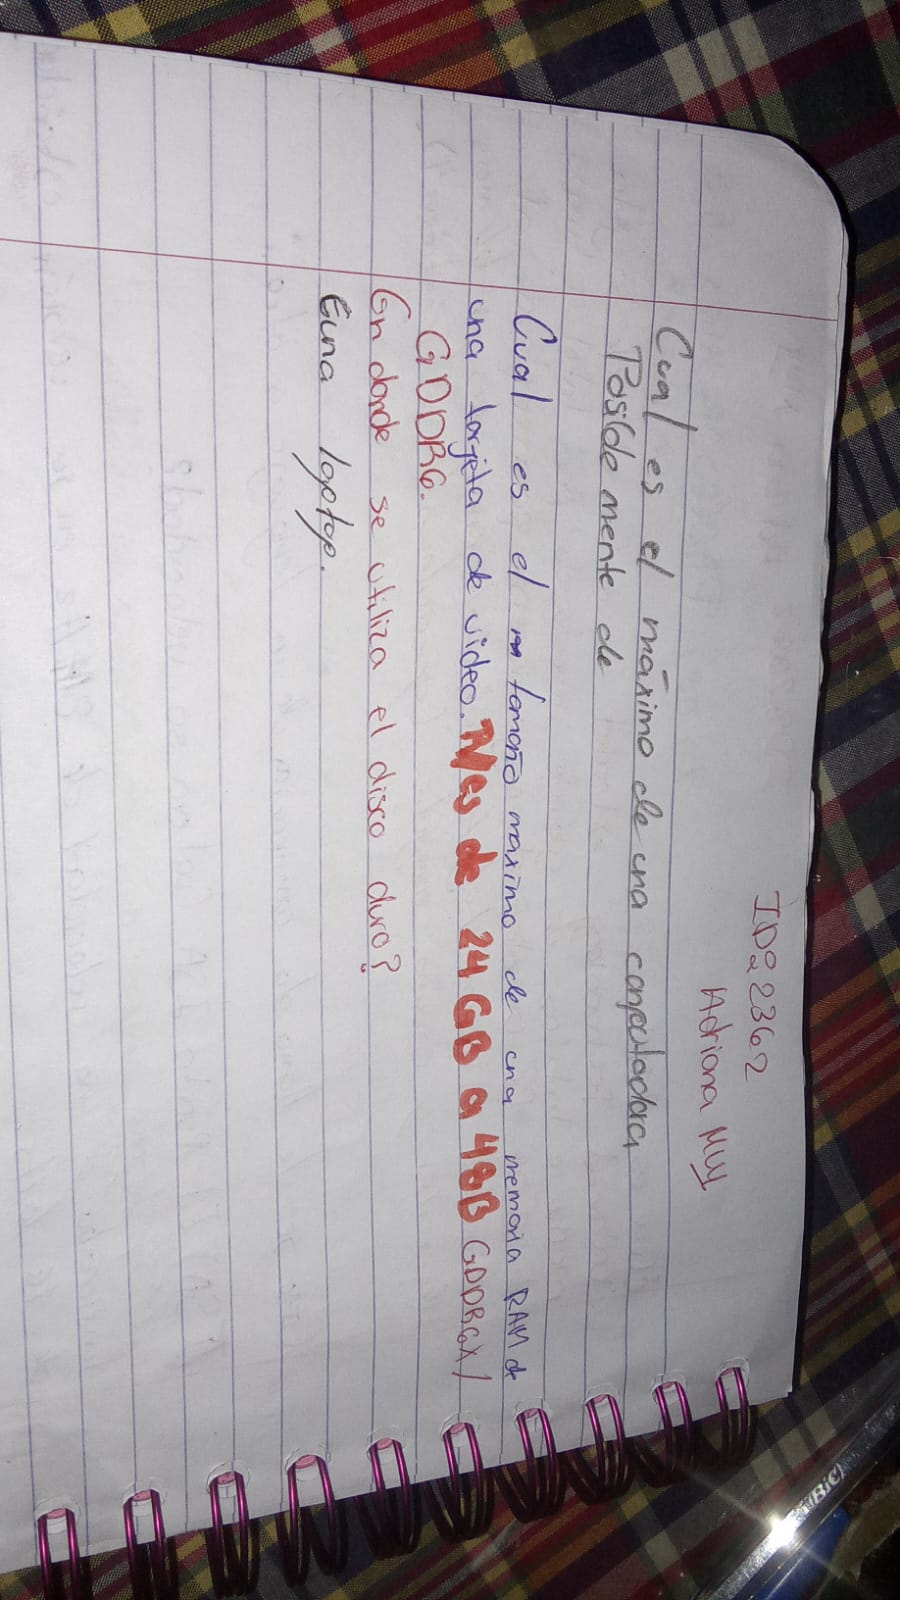 ID: 2362
Adriana MUY
Cual es el máximo de una computadora
Posible mente de
Cual es el tamaño maximo de una memoria RAM de
una tarjeta de video. N/es de 24 GB a 48B GDDR6X/
GDDR6.
En donde se utiliza el disco duro?
Euna laptop.
BIC